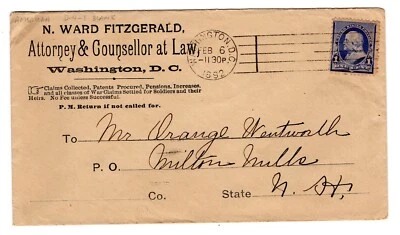 N. WARD FITZGERALD,
Attorney & Counsellor at Law,
Washington, D. C.
Claims Collected, Patents Procured, Pensions, Increases,
and all classes of War Claims Settled for Soldiers and their
Heirs. No Fee unless Successful.
P. M. Return if not called for.
WASHINGTON, D.C.
FEB 6
-1130P
1892
1 1
To Mr Orange Wentworth
P. O. Milton Mills
Co. State N. H.